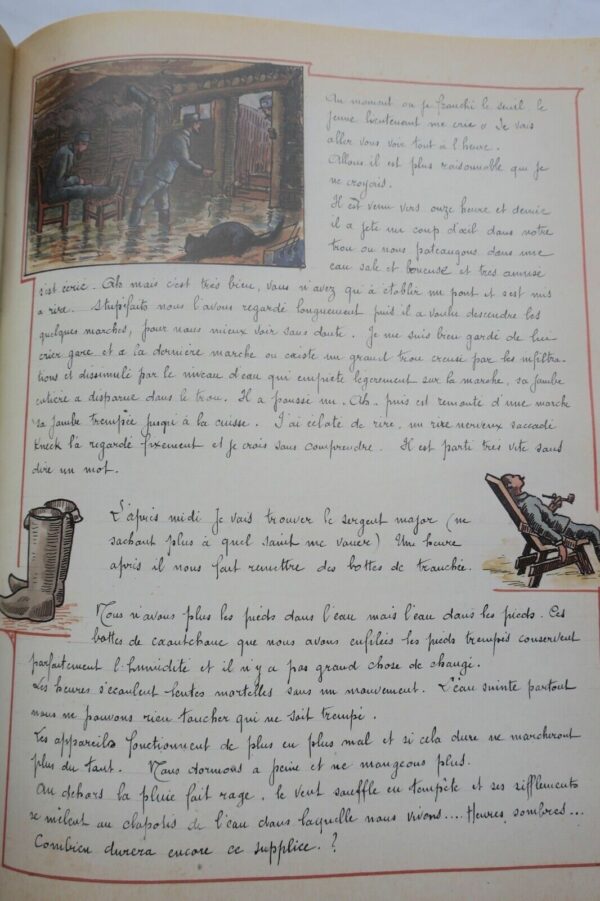 Au moment ou je franchi le seuil le
jeune lieutenant me crie « Je vais
aller vous voir tout à l'heure.
Allons il est plus raisonnable que je
ne croyais.
Il est venu vers onze heure et demie
il a jeté un coup d'œil dans notre
trou ou nous pataugeons dans une
eau sale et boueuse et tres amusé
s'est écrié. Ah mais c'est très bien, vous n'avez qu'à établir un pont et s'est mis
a rire. Stupéfaits nous l'avons regardé longuement puis il a voulu descendre les
quelques marches, pour nous mieux voir sans doute. Je me suis bien gardé de lui
crier gare et a la dernière marche ou existe un grand trou creusé par les infiltra-
tions et dissimulé par le niveau d'eau qui empiete légerement sur la marche, sa jambe
entière a disparue dans le trou. Il a poussé un . Ah . puis est remonté d'une marche
sa jambe trempée jusqu'à la cuisse. J'ai éclaté de rire, un rire nerveux saccadé
Kneck l'a regardé fixement et je crois sans comprendre. Il est parti très vite sans
dire un mot.
L'après midi Je vais trouver le sergent major (ne
sachant plus à quel saint me vouer) Une heure
après il nous fait remettre des bottes de tranchée.
Nous n'avons plus les pieds dans l'eau mais l'eau dans les pieds. Ces
bottes de caoutchouc que nous avons enfilées les pieds trempés conservent
parfaitement l'humidité et il n'y a pas grand chose de changé.
Les heures s'écoulent lentes mortelles sans un mouvement. L'eau suinte partout
nous ne pouvons rien toucher qui ne soit trempé.
Les appareils fonctionnent de plus en plus mal et si cela dure ne marcheront
plus du tout. Nous dormons a peine et ne mangeons plus.
Au dehors la pluie fait rage, le vent souffle en tempête et ses sifflements
se mêlent au clapotis de l'eau dans laquelle nous vivons.... Heures sombres...
Combien durera encore ce supplice. ?